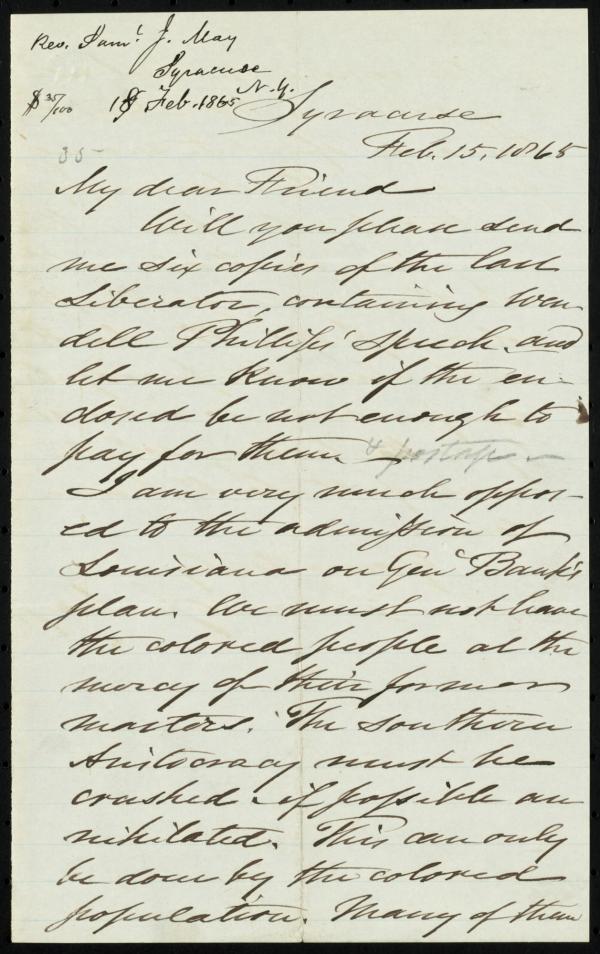 Rev. Saml. J. May
Syracuse
N.Y.
$ 35/100 18 Feb. 1865
Syracuse
Feb. 15, 1865
35
My dear Friend
Will you please send
me six copies of the last
Liberator, containing Wen
dell Phillips' speech. and
let me know if the en-
closed be not enough to
pay for them & postage
I am very much oppos-
ed to the admission of
Louisiana on Genl Bank's
plan. We must not leave
the colored people at the
mercy of their former
masters. The southern
Aristocracy must be
crushed - if possible an
nihilated. This can only
be done by the colored
population. Many of them